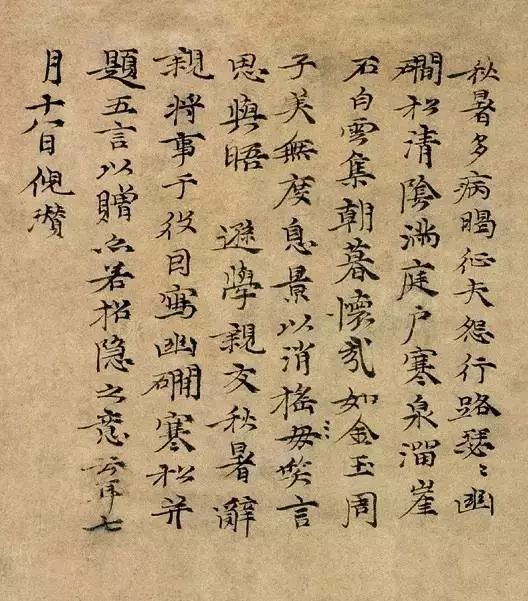 秋暑多病暍征夫怨行路瑟〻幽
磵松清陰滿庭户寒泉溜崖
石白雲集朝暮懷哉如金玉周
子美無度息景以消搖毋笑言
思與晤 遜學親友秋暑辭
親將事于役因寫幽磵寒松并
題五言以贈亦若招隱之意云耳七
月十八日倪瓚